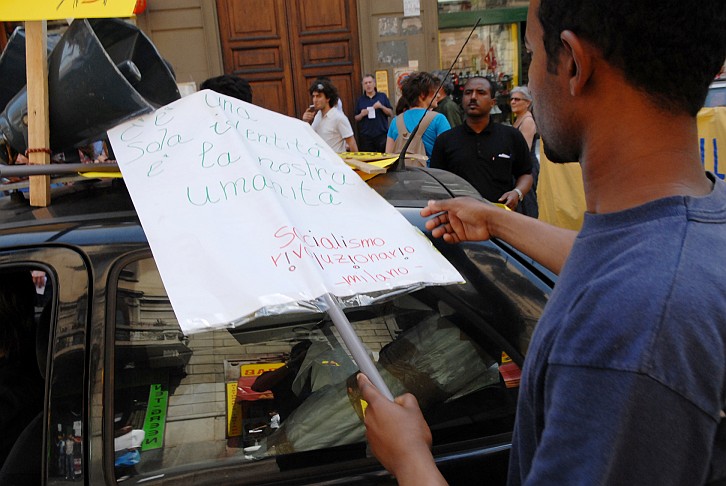 c'è una
sola identità
è la nostra
umanità
Socialismo
r!v!luz!onar!o
-milano-